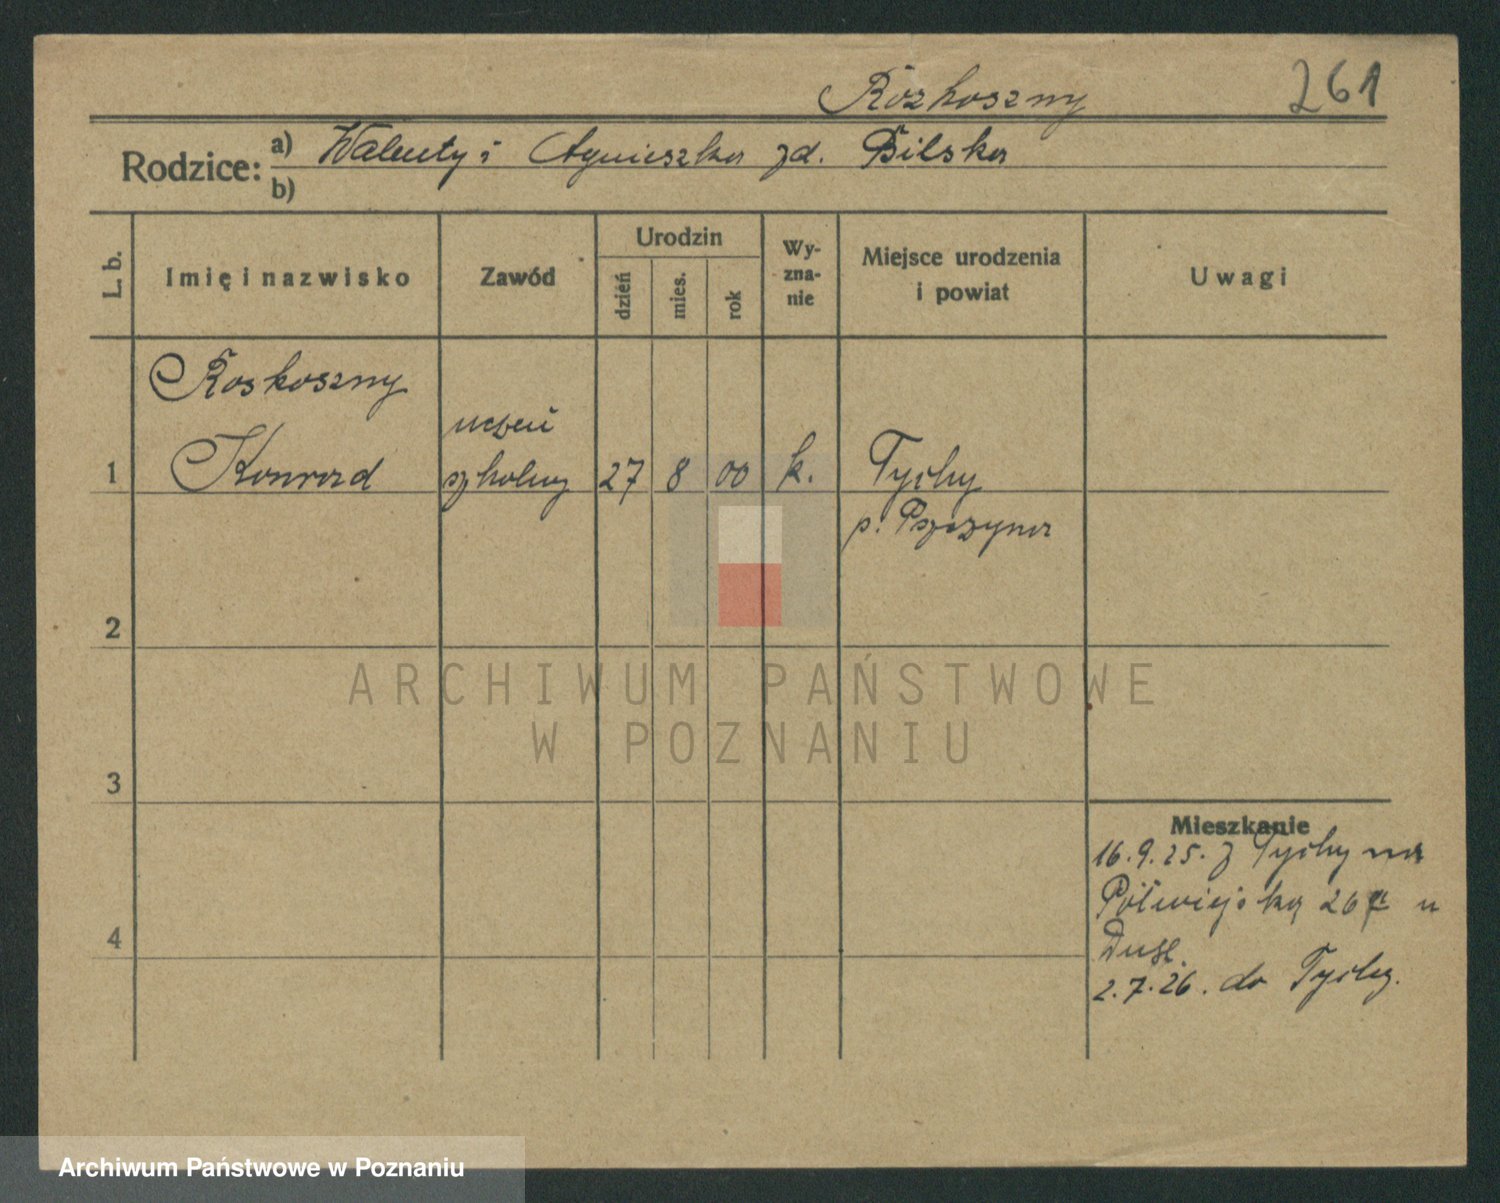 Rozkoszny 261
Rodzice: a) Walenty i Agnieszka zd. Bilska
b)
L. b. Imię i nazwisko Zawód Urodzin dzień mies. rok Wy-zna-nie Miejsce urodzenia i powiat Uwagi
Roskoszny
uczeń
1 Konrad szkolny 27 8 00 k. Tychy
p. Pszczyna
2
ARCHIWUM PAŃSTWOWE
W POZNANIU
3
Mieszkanie
16.9.25. z Tychy na
Półwiejską 26 u
4
2.7.26. do Tychy.
Archiwum Państwowe w Poznaniu